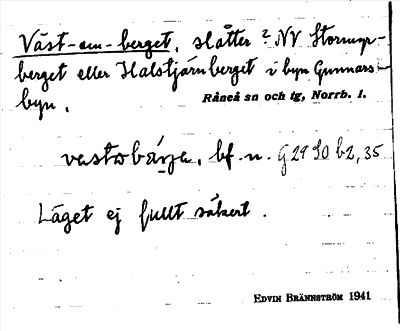 Väst-om-berget, slåtter ? NV Stormyr-
berget eller Halstjärnberget i byn Gunnars-
byn.
Råneå sn och tg, Norrb. l.
bf. n. G 29 SO b2, 35
Läget ej fullt säkert.
EDVIN BRÄNNSTRÖM 1941